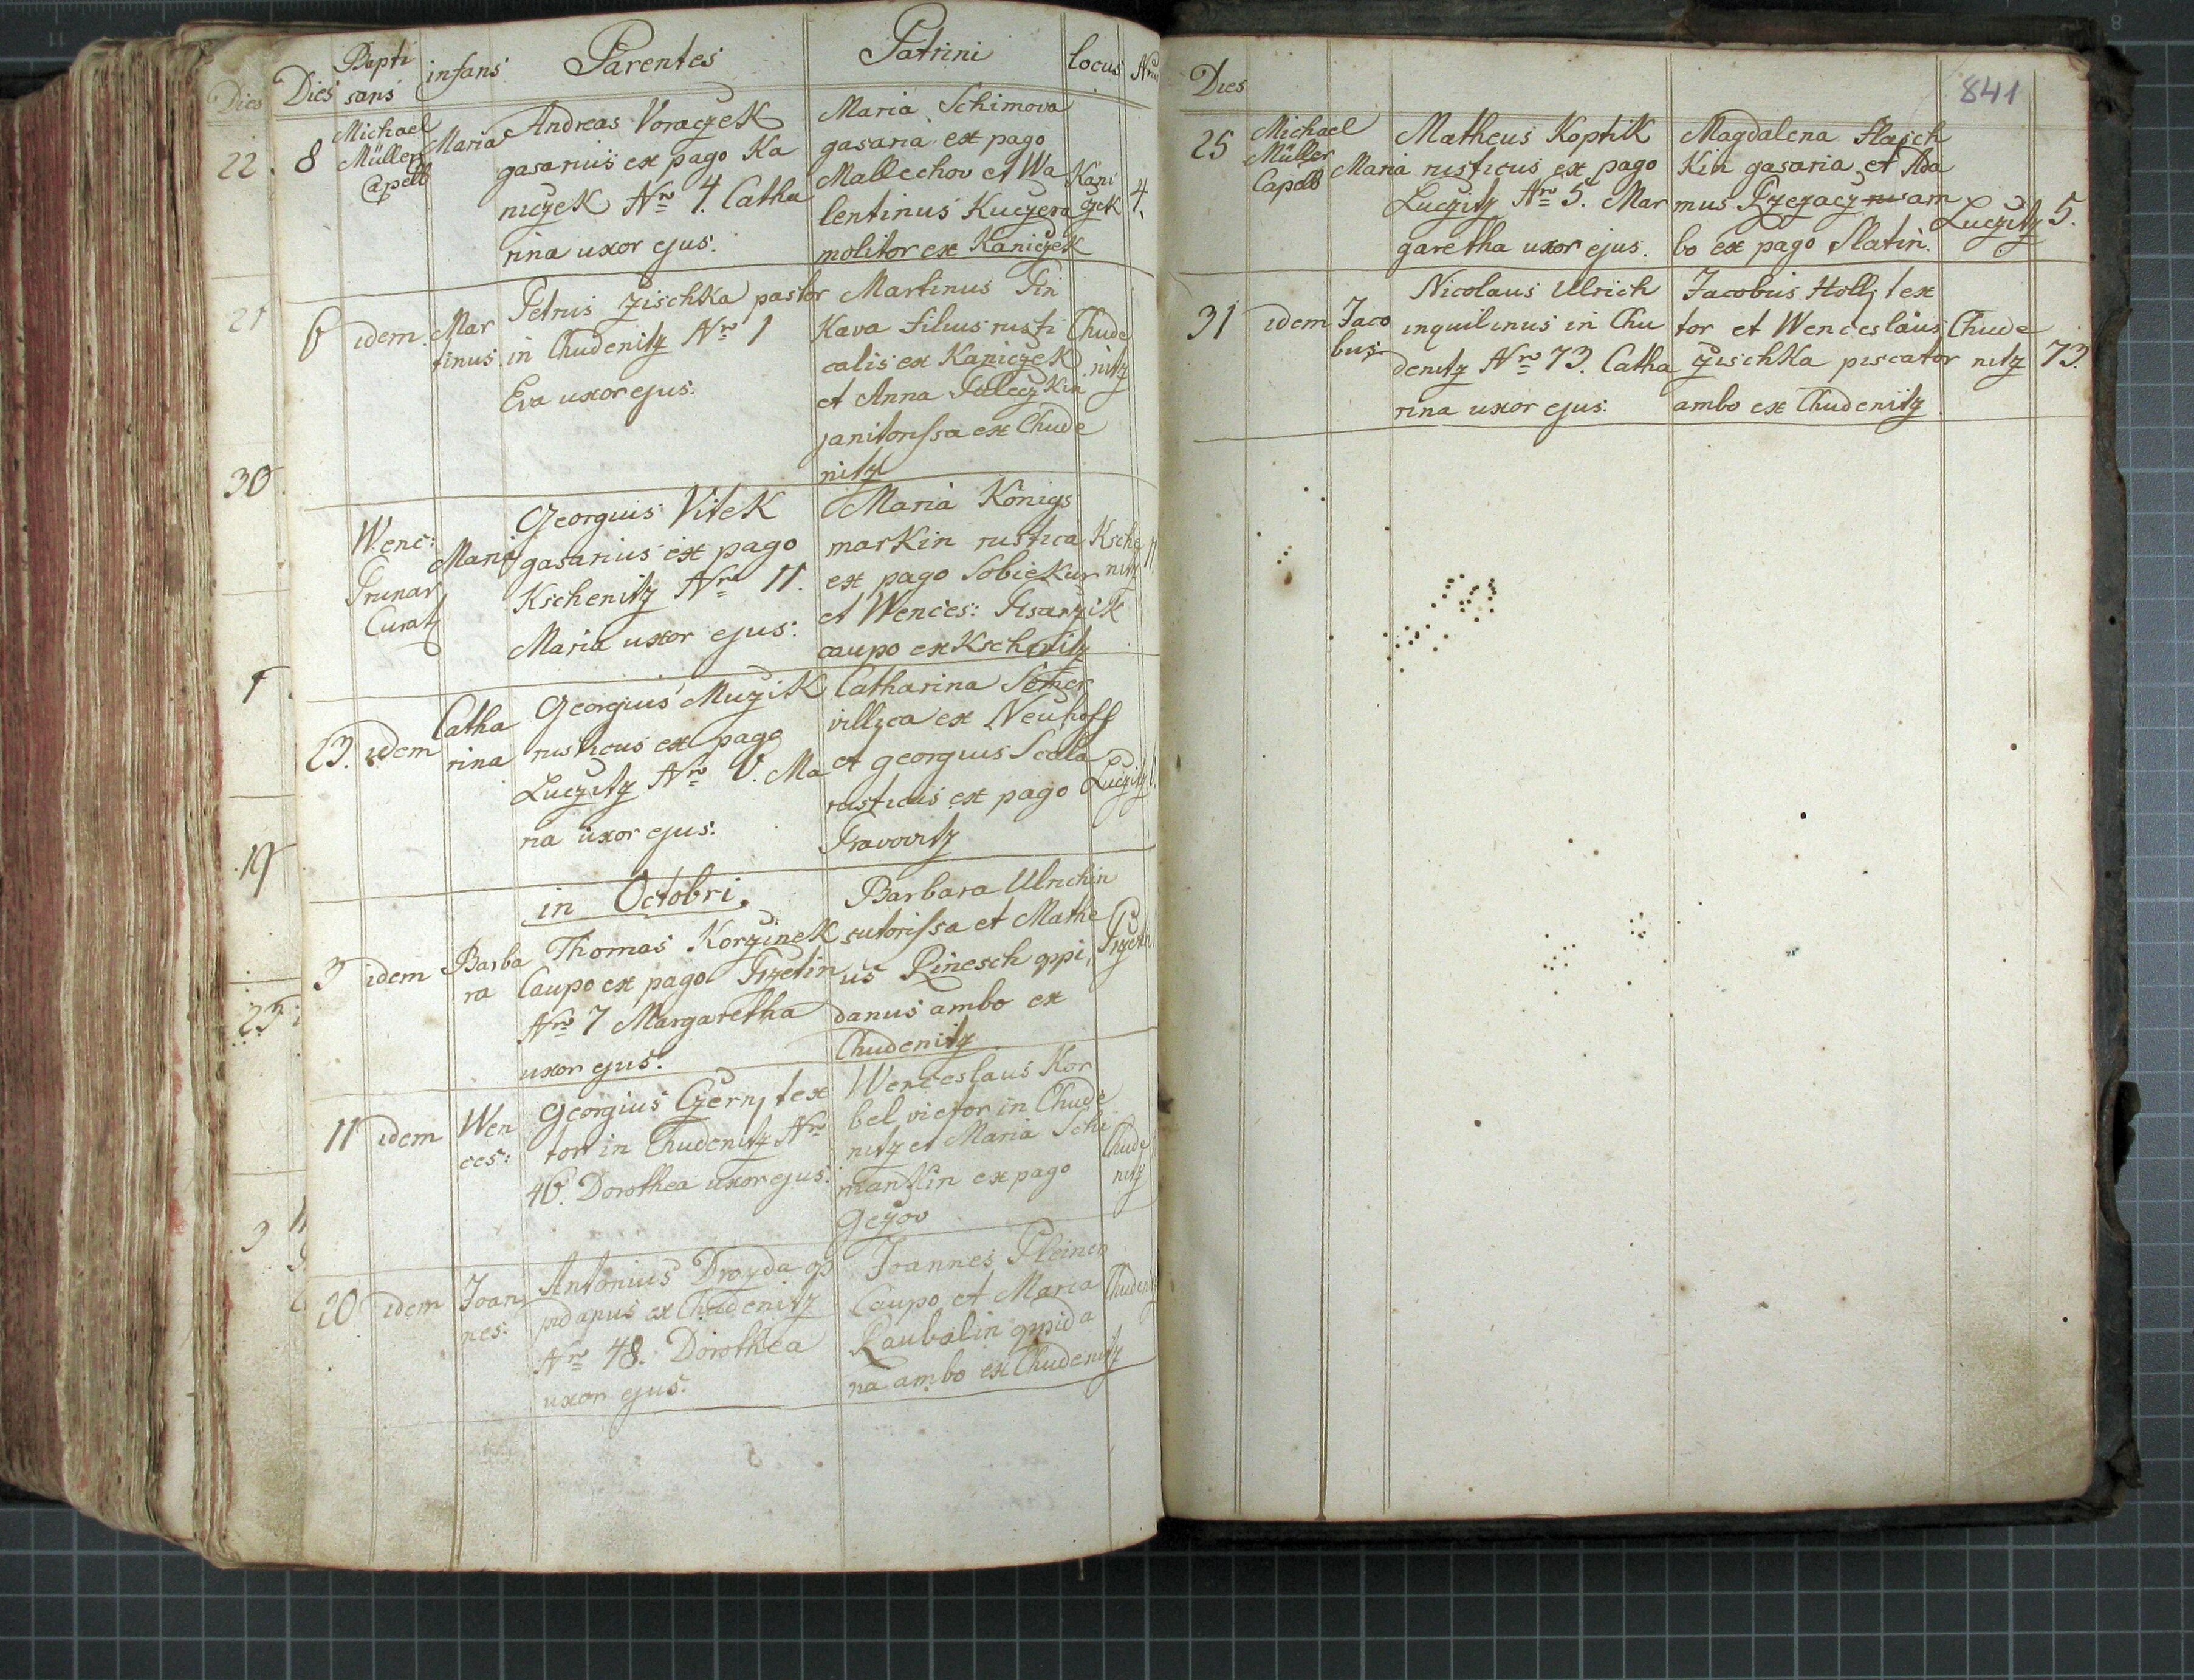 Dies Baptisans infans Parentes Patrini locus Nrus
8 Michael Müller Capell Maria
Andreas Voraczek
gasarius ex pago Ka
niczek Nro 4. Catha
rina uxor ejus.
Maria Schimova
gasaria ex pago
Mallechov et Wa
lentinus Kuczera
molitor ex Kaniczek
Kani
czek 4.
6 idem Mar
tinus
Petrus Zischka pastor
in Chudenitz Nro 1
Eva uxor ejus.
Martinus Pin
kava filius rusti
calis ex Kaniczek
et Anna
janitorissa ex Chude
nitz
Chude
nitz
Wenc:
Prunar
Curat
Maria
Georgius Vitek
gasarius ex pago
Kschenitz Nro 11.
Maria uxor ejus.
Maria Königs
markin rustica
ex pago Sobiekur
et Wences: Pisarzik
caupo ex Kschenitz
Ksche
nitz 11.
23. idem Catha
rina
Georgius Muzik
rusticus ex pago
Luczitz Nro 6. Ma
ria uxor ejus.
Catharina
villica ex Neuhoff
et georgius Scala
rusticus ex pago
Pravovitz
Luczitz
in Octobri.
3 idem Barba
ra
Thomas Korzinek
Caupo ex pago Przetin
Nro 7 Margaretha
uxor ejus.
Barbara Ulrichin
sutorissa et Mathe
us Rinesch oppi
danus ambo ex
Chudenitz
Przetin
11 idem Wen
ces:
Georgius Czerny tex
tor in Chudenitz Nro
46. Dorothea uxor ejus.
Wenceslaus Kor
bel vietor in Chude
nitz et Maria Schi
mankin ex pago
Gezov
Chude
nitz
20 idem Joan
nes:
Antonius Drozda op
pidanus ex Chudenitz
Nro 48. Dorothea
uxor ejus.
Joannes Pleiner
Caupo et Maria
Raubalin oppida
na ambo ex Chudenitz
Chudenitz
Dies
22.
21
30
1
19
23
3
Dies
841
25 Michael
Müller
Capell Maria
Matheus Koptik
rusticus ex pago
Luczitz Nro 5. Mar
garetha uxor ejus.
Magdalena Flasch
kin gasaria et Ada
mus am
bo ex pago Slatin.
Luczitz 5.
31 idem Jaco
bus
Nicolaus Ulrich
inquilinus in Chu
denitz Nro 73. Catha
rina uxor ejus.
Jacobus Holly tex
tor et Wenceslaus
Zischka piscator
ambo ex Chudenitz
Chude
nitz 73.